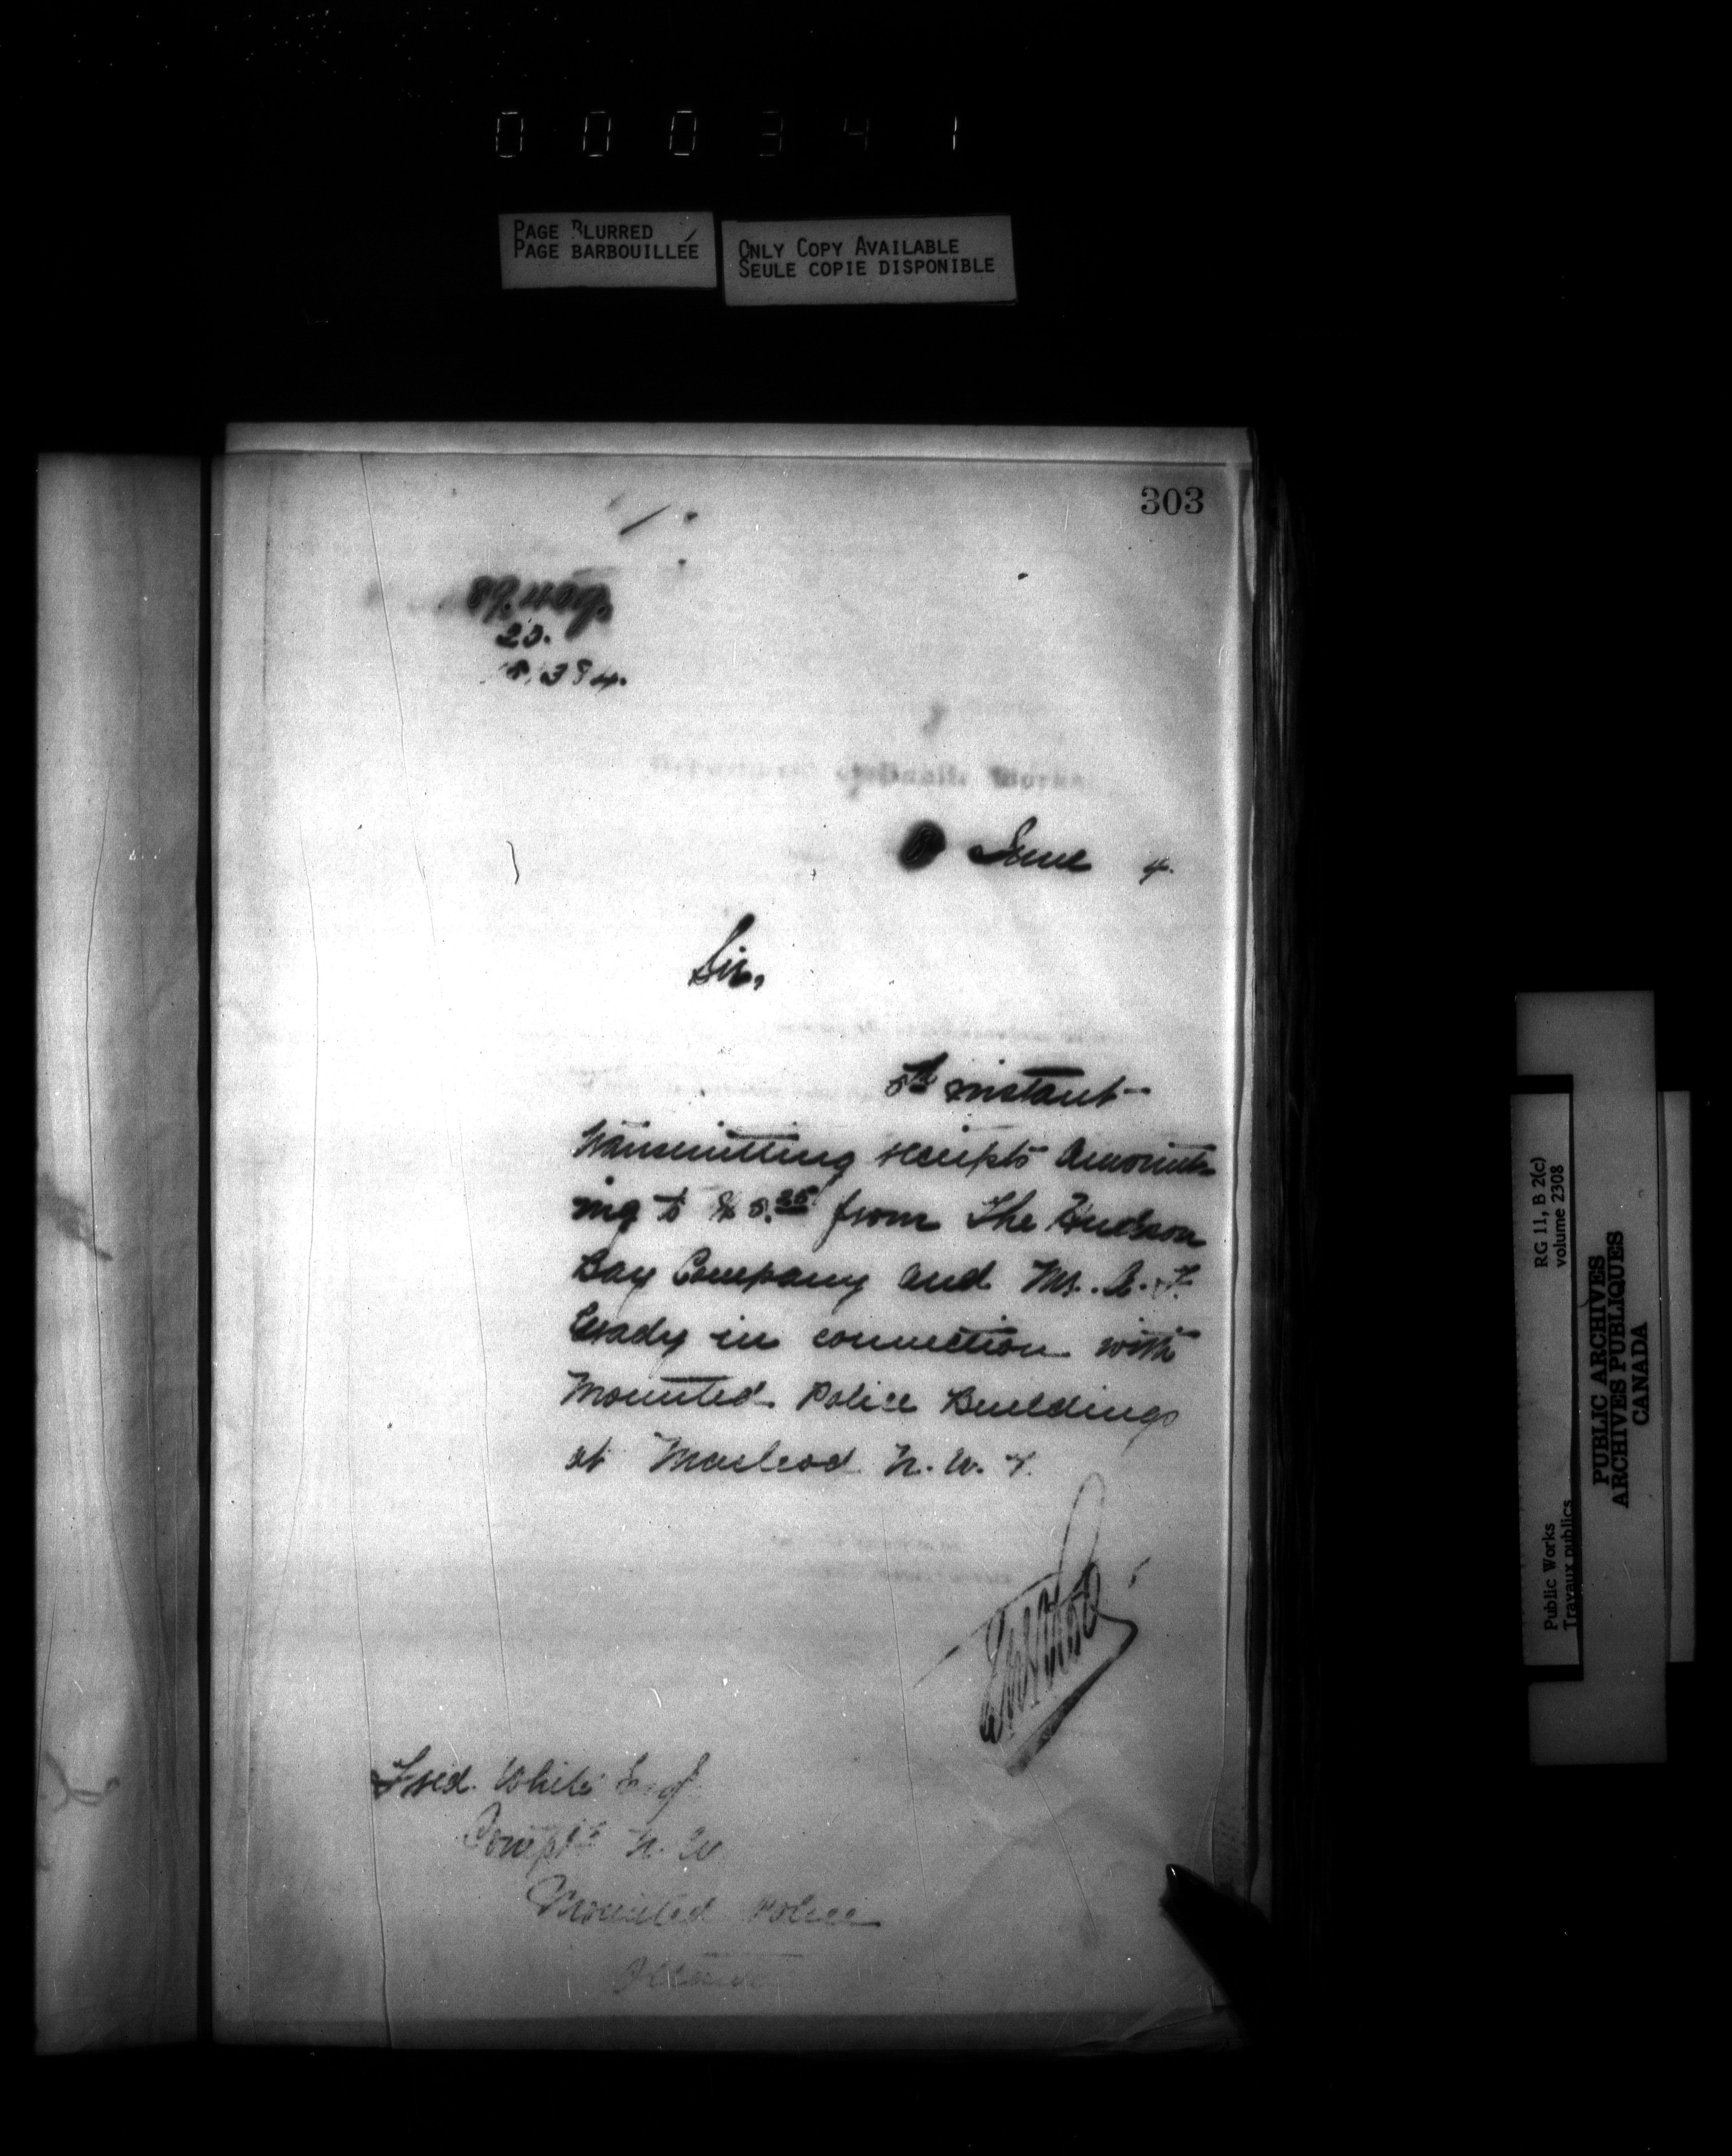 000341
PAGE BLURRED
PAGE BARBOUILLÉE
ONLY COPY AVAILABLE
SEULE COPIE DISPONIBLE
303
23.
Department of Public Works
June 4.
Sir,
5th instant
transmitting receipts amount-
ing to $5.25 from The Hudson
Bay Company and Mr. A. F.
Grady in connection with
Mounted Police Buildings
at Macleod N. W. T.
Fred. White Esq
Compt N. W
Mounted Police
Ottawa
RG 11, B 2(c)
volume 2308
Public Works
Travaux publics
PUBLIC ARCHIVES
ARCHIVES PUBLIQUES
CANADA